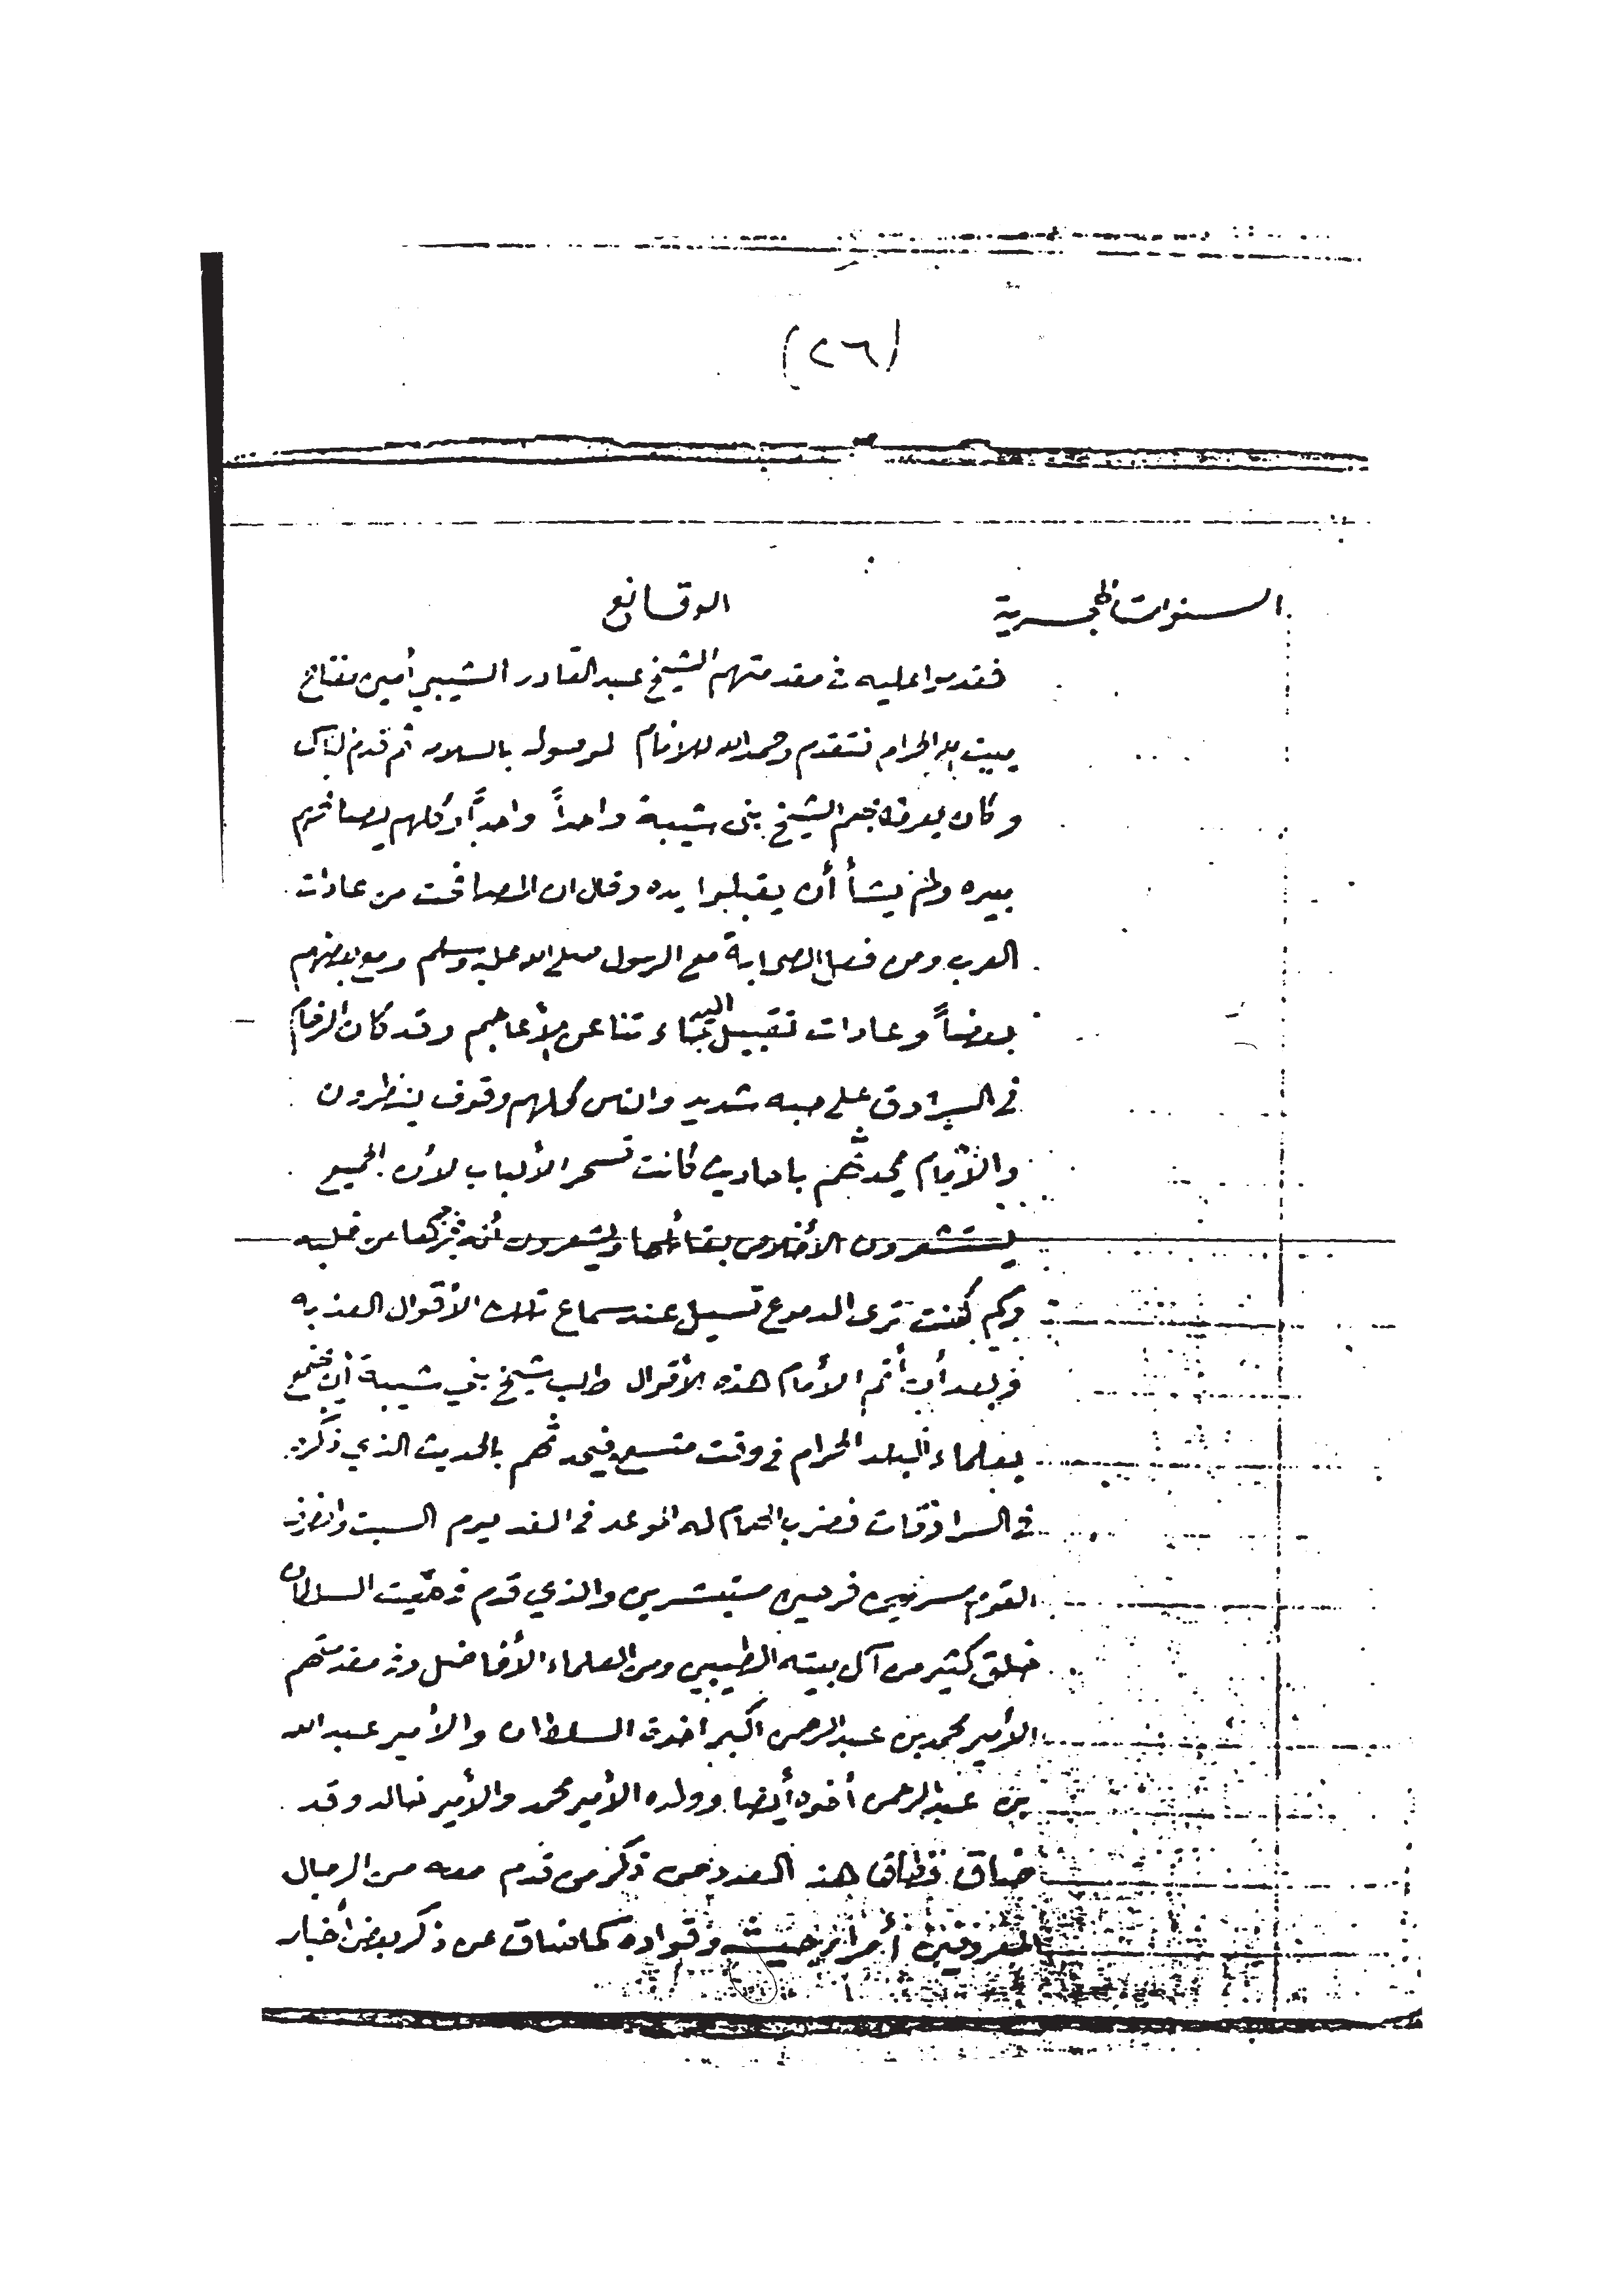 (٢٦)
السنوات الهجرية الوقائع
فقدموا عليه في مقدمتهم الشيخ عبد القادر الشيبي أمين مفتاح
بيت الله الحرام فتقدم وحمد الله للإمام لوصوله بالسلامه ثم قدم الناس
وكان يعرفه بهم الشيخ بني شيبة واحداً واحداً وكلهم يصافحهم
بيده ولم يشأ أن يقبلوا يده وقال ان المصافحت من عادات
العرب ومن فعل الصحابة مع الرسول صلى الله عليه وسلم ومع بعضهم
بعضاً وعادات تقبيل اليد جاءتنا عن الأعاجم وقد كان الزحام
في السرادق على جبه شديد والناس كلهم وقوف ينظرون
والأمام يحدثهم باحاديث كانت تسحر الألباب لأن الجميع
يستشعرون الأخلاص بقائلها ويشعرون أنه من قلبه
وكم كنت ترى الدموع تسيل عند سماع تلك الأقوال العذبه
فبعد أن أتم الأمام هذه الأقوال طلب شيخ بني شيبة أن يجتمع
بعلماء البلد الحرام في وقت متسع فيحدثهم بالحديث الذي ذكره
في السرادقات فضرب الأمام له الموعد في الغد يوم السبت وانصرف
القوم مسرورين فرحين مستبشرين والذي قدم في معيت السلطان
خلق كثير من آل بيته الطيبين ومن العلماء الأفاضل وفي مقدمتهم
الأمير محمد بن عبد الرحمن اكبر اخوة السلطان والأمير عبد الله
بن عبد الرحمن أخوه أيضا وولده الأمير محمد والأمير خالد وقد
ضاق نطاق هذ العدد من ذكر من قدم معه من الرجال
المعروفين أمراء جيشه وقواده كما ضاق عن ذكر بعض أخبار